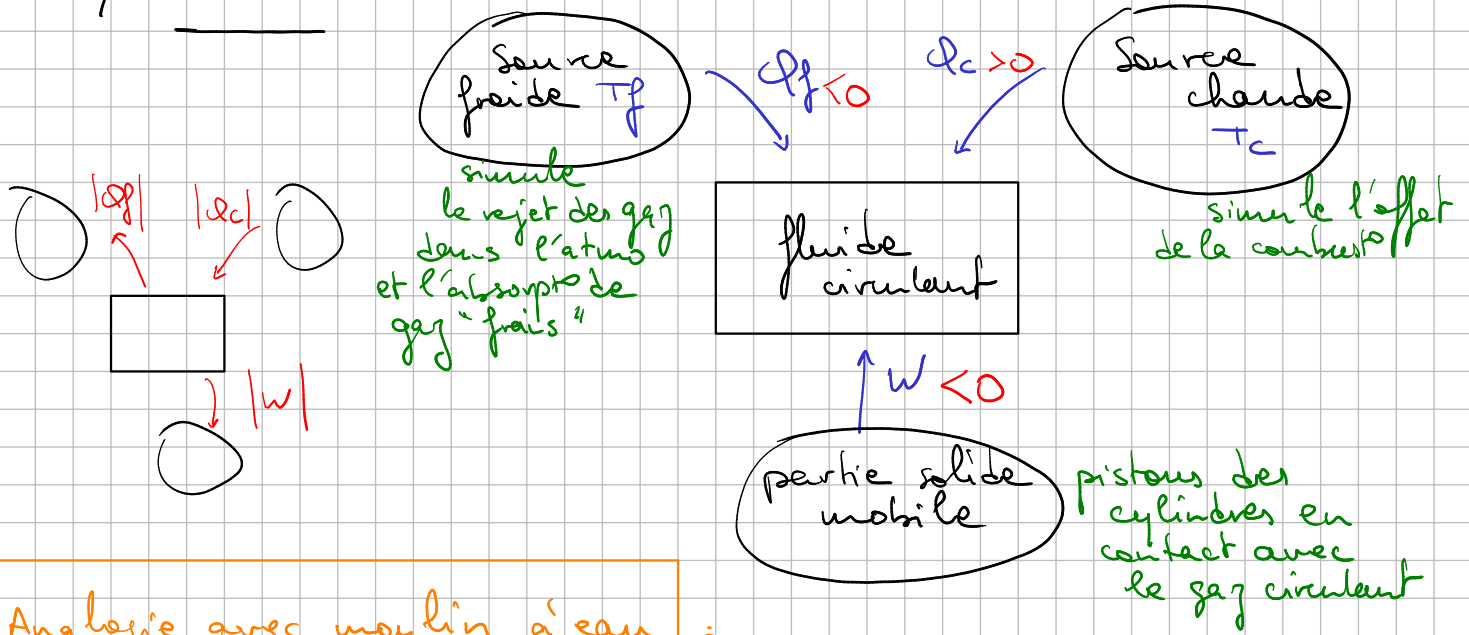 Source
froide Tf
Qf <0
Qc >0
Source
chaude
Tc
|Qf|
|Qc|
|W|
simule
le rejet des gaz
dans l'atmo
et l'absorpt° de
gaz "frais"
fluide
circulant
simule l'effet
de la combust°
W <0
partie solide
mobile
pistons des
cylindres en
contact avec
le gaz circulant
Analogie avec moulin à eau :